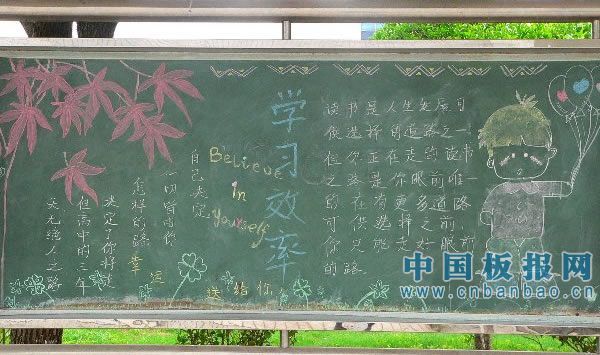 天无绝人之路
但高中的三年
决定了你将走
怎样的路
一切皆由你
自己决定
Believe
in
Yourself
学习效率
读书是人生发展可
供选择的道路之一
但你正在走的读书
之路是你眼前唯一
的在没有更多道路
可供选择之前,
你只能走好眼前
的路
幸运
送给你
中国板报网
www.cnbanbao.cn